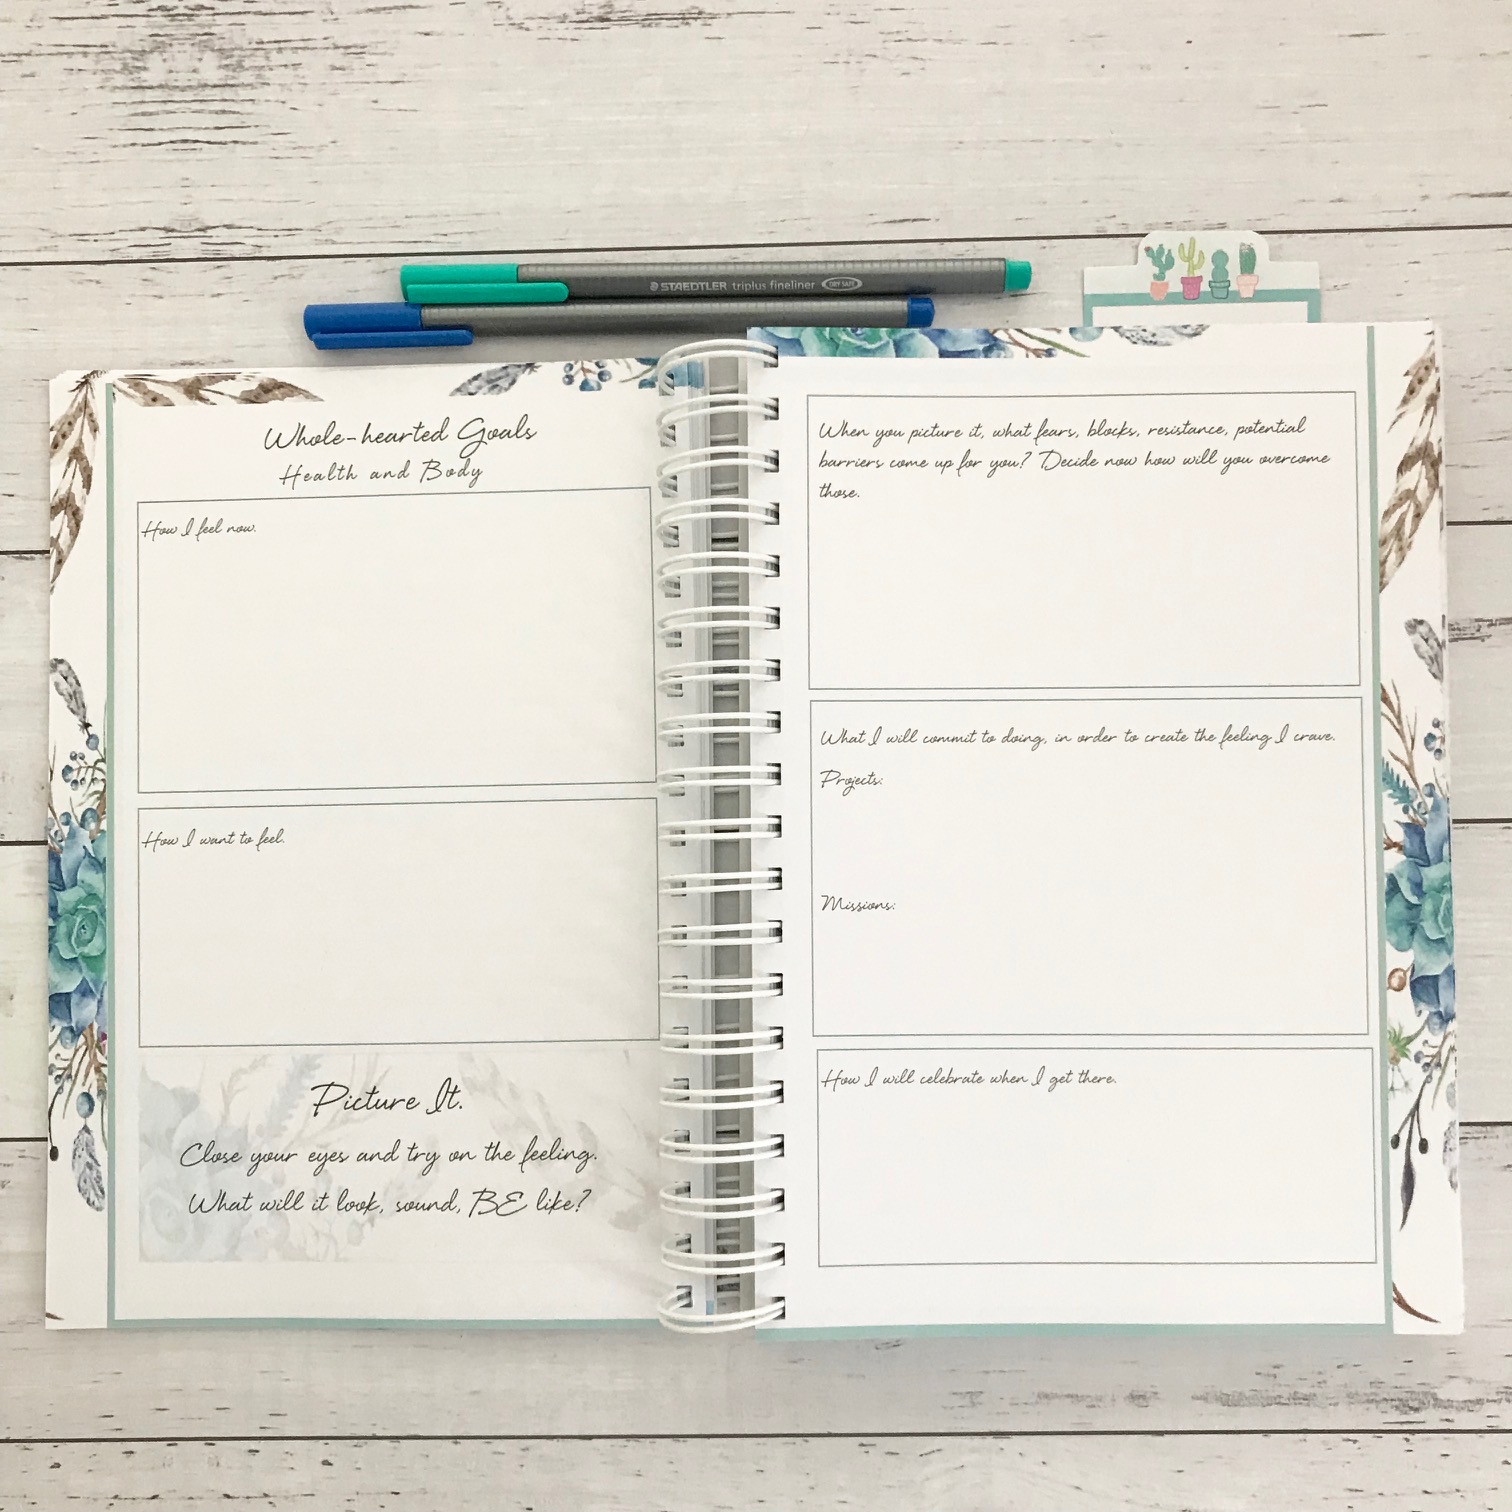 STAEDTLER triplus fineliner DRY SAFE
Whole-hearted Goals
Health and Body
How I feel now.
How I want to feel.
Picture It.
Close your eyes and try on the feeling.
What will it look, sound, BE like?
When you picture it, what fears, blocks, resistance, potential
barriers come up for you? Decide now how will you overcome
those.
What I will commit to doing, in order to create the feeling I crave.
Projects:
Missions:
How I will celebrate when I get there.